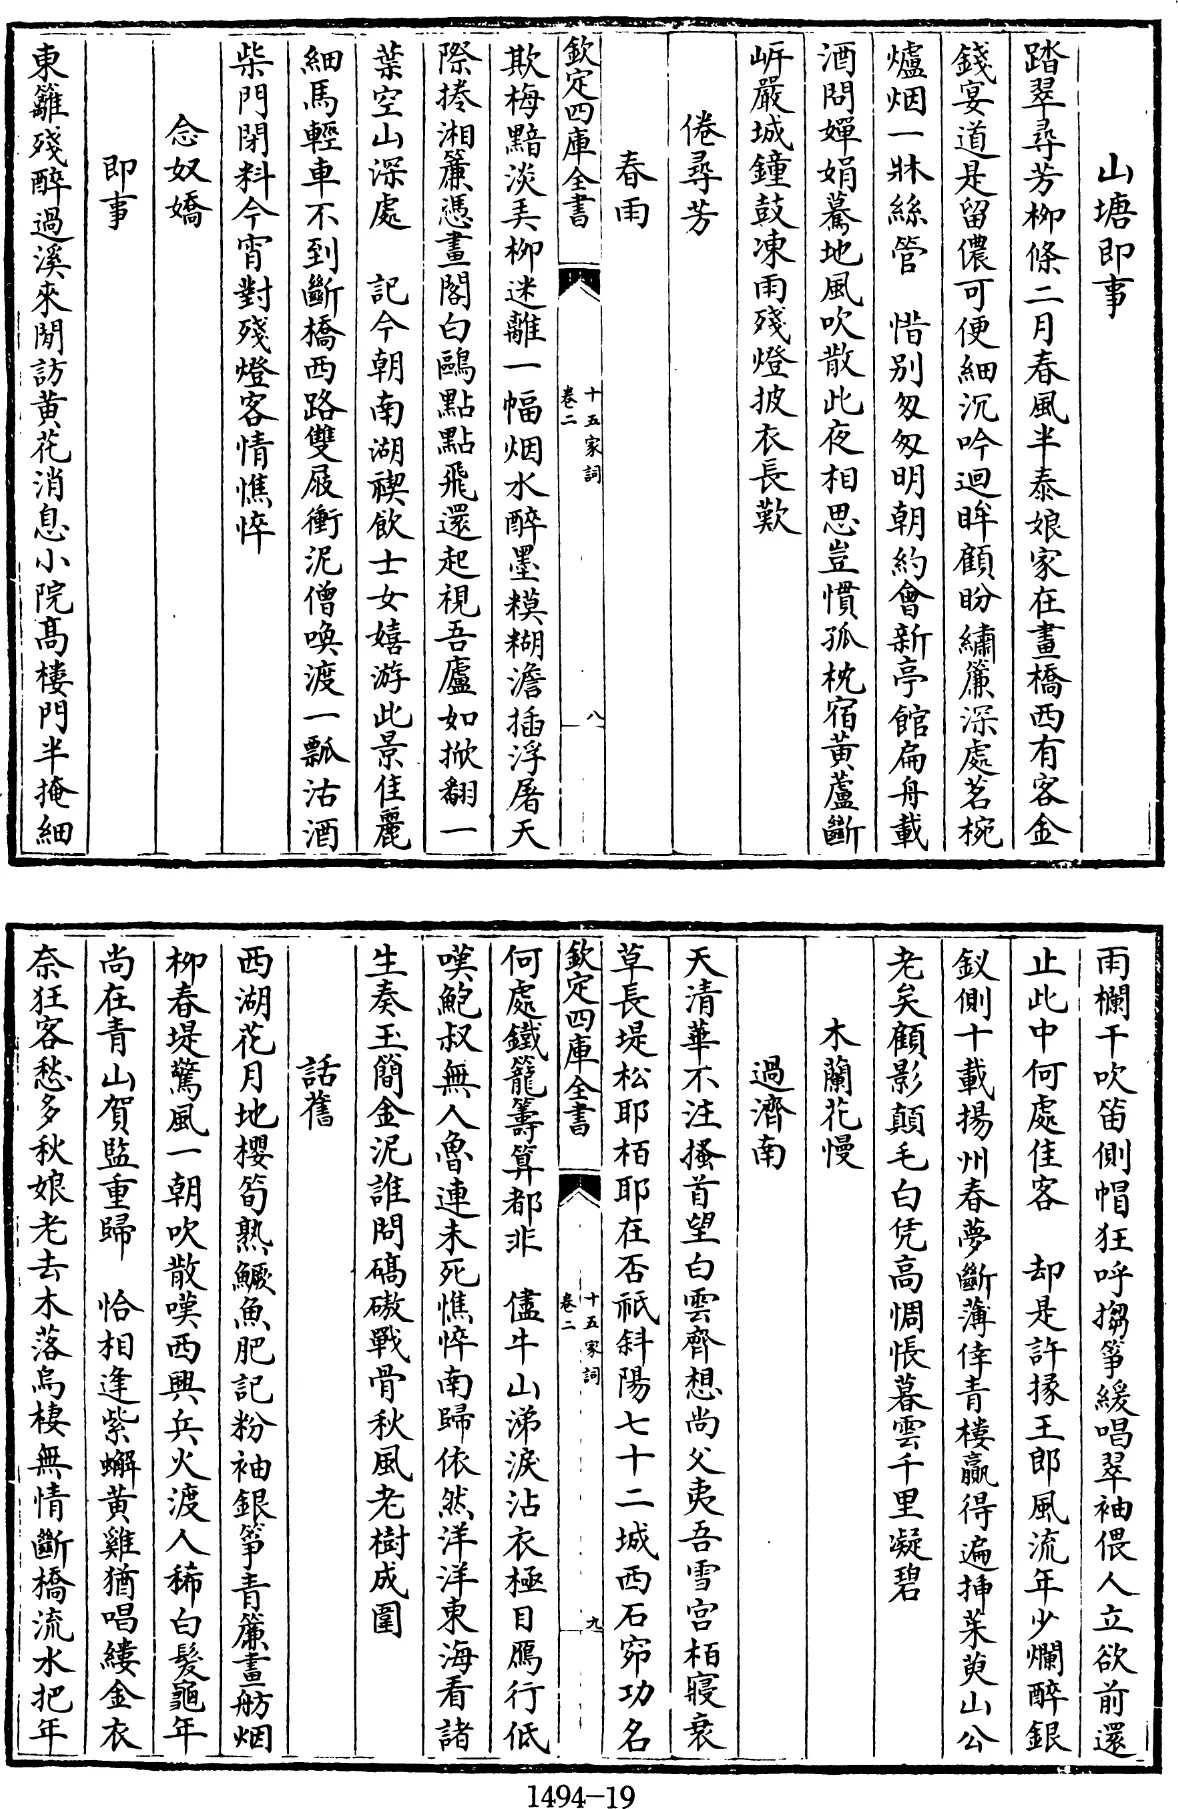 山塘即事
踏翠尋芳柳條二月春風半泰娘家在畫橋西有客金
錢宴道是留儂可便細沉吟迴眸顧盼繡簾深處茗椀
爐烟一牀絲管　惜别匆匆明朝約會新亭館扁舟載
酒問嬋娟驀地風吹散此夜相思豈慣孤枕宿黄蘆斷
岍嚴城鐘鼓凍雨殘燈披衣長歎
倦尋芳
春雨
欽定四庫全書
十五家詞
卷二
八
欺梅黯淡弄柳迷離一幅烟水醉墨糢糊澹插浮屠天
際捲湘簾憑畫閣白鷗點點飛還起視吾廬如掀翻一
葉空山深處　記今朝南湖禊飲士女嬉游此景佳麗
細馬輕車不到斷橋西路雙屐衝泥僧喚渡一瓢沽酒
柴門閉料今宵對殘燈客情憔悴
念奴嬌
即事
東籬殘醉過溪來閒訪黄花消息小院髙樓門半掩細
雨欄干吹笛側帽狂呼搊箏緩唱翠袖偎人立欲前還
止此中何處佳客　却是許掾王郎風流年少爛醉銀
釵側十載揚州春夢斷薄倖青樓贏得遍挿茱萸山公
老矣顧影顛毛白凭高惆悵暮雲千里凝碧
木蘭花慢
過濟南
天清華不注搔首望白雲齊想尚父夷吾雪宫栢寢衰
草長堤松耶栢耶在否祇斜陽七十二城西石窌功名
欽定四庫全書
十五家詞
卷二
九
何處鐵籠籌算都非　儘牛山涕淚沾衣極目鴈行低
嘆鮑叔無人魯連未死憔悴南歸依然洋洋東海看諸
生奏玉簡金泥誰問碻磝戰骨秋風老樹成圍
話舊
西湖花月地櫻筍熟鱖魚肥記粉袖銀箏青簾畫舫烟
柳春堤驚風一朝吹散嘆西興兵火渡人稀白髮龜年
尚在青山賀監重歸　恰相逢紫蠏黄雞猶唱縷金衣
奈狂客愁多秋娘老去木落烏棲無情斷橋流水把年
1494-19